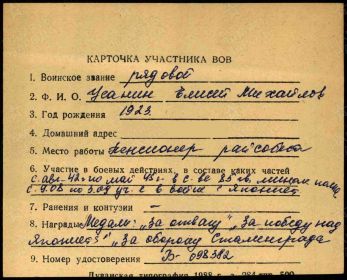 КАРТОЧКА УЧАСТНИКА ВОВ
1. Воинское звание рядовой
2. Ф. И. О. Усанин Елисей Михайлов
3. Год рождения 1923
4. Домашний адрес
5. Место работы пенсионер райсобеса
6. Участие в боевых действиях, в составе каких частей
с авг. 42г по май 43г в с-ве 85 гв. мином. полка
с 9.08 по 3.09 уч-к в войне с Японией
7. Ранения и контузии –
8. Награды Медали: "За отвагу", "За победу над
Японией", "За оборону Сталинграда
9. Номер удостоверения Б- 098382
типография 1988 г. 500